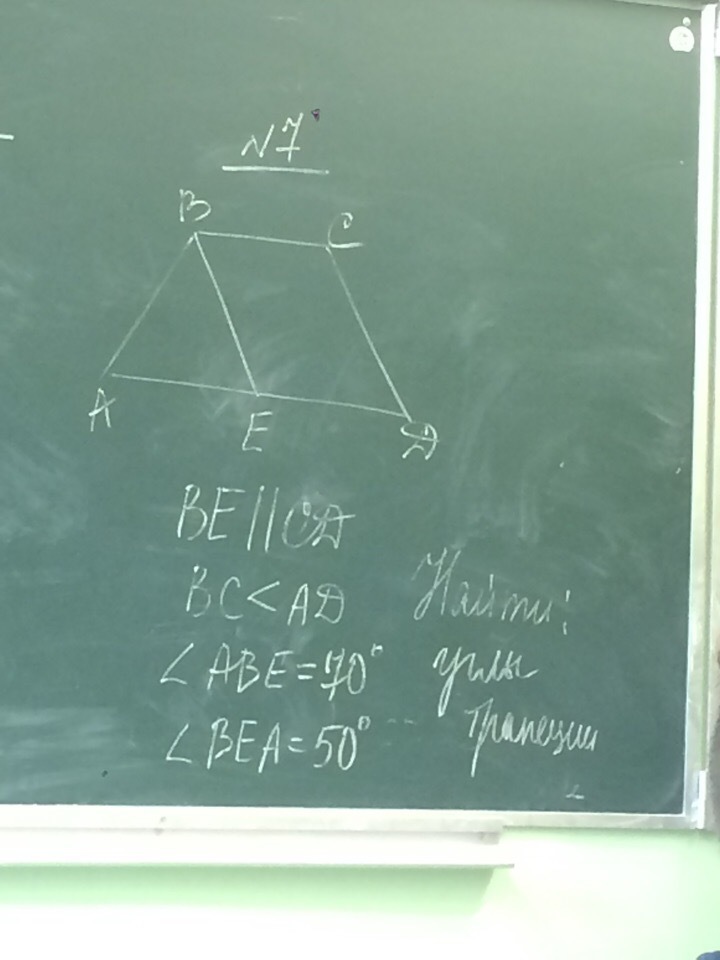 N7
B C
A E D
BE||CD
BC<AD
∠ABE=70°
∠BEA=50°
Найти:
углы
трапеции